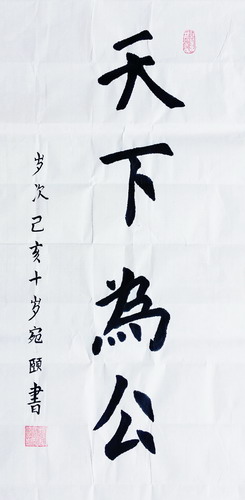 天下為公
岁次己亥十岁宛颐書